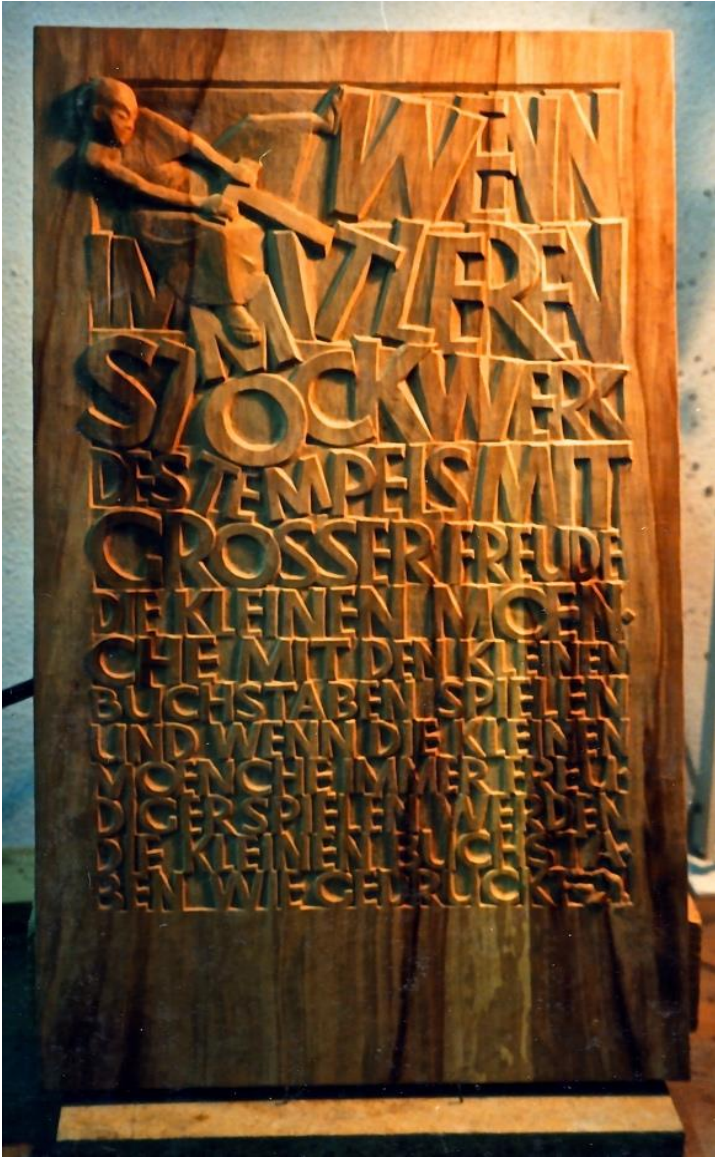 WENN
IM MITTLEREN
STOCKWERK
DES TEMPELS MIT
GROSSER FREUDE
DIE KLEINEN MOEN-
CHE MIT DEN KLEINEN
BUCHSTABEN SPIELEN
UND WENN DIE KLEINEN
MOENCHE IMMER FREU-
DIGER SPIELEN WERDEN
DIE KLEINEN BUCHSTA-
BEN WIE GEDRUCKT